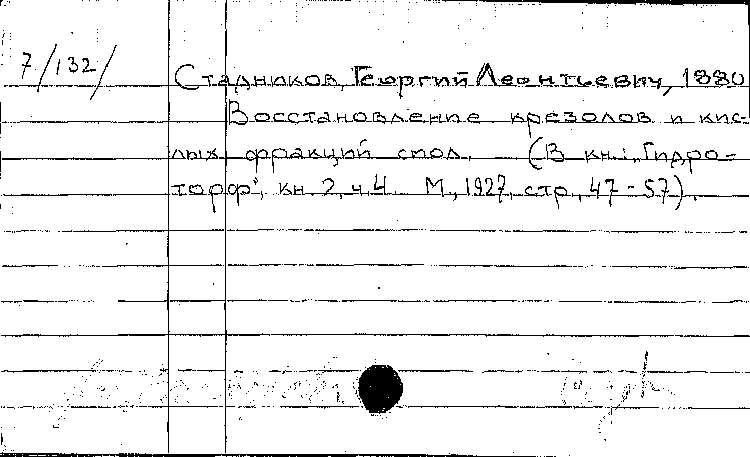 7/132/
Стадников, Георгий Леонтьевич, 1880
Восстановление крезолов и кис-
лых фракций смол. (В кн.: „Гидро-
торф“, кн. 2, ч. 4. М., 1927, стр., 47-57).